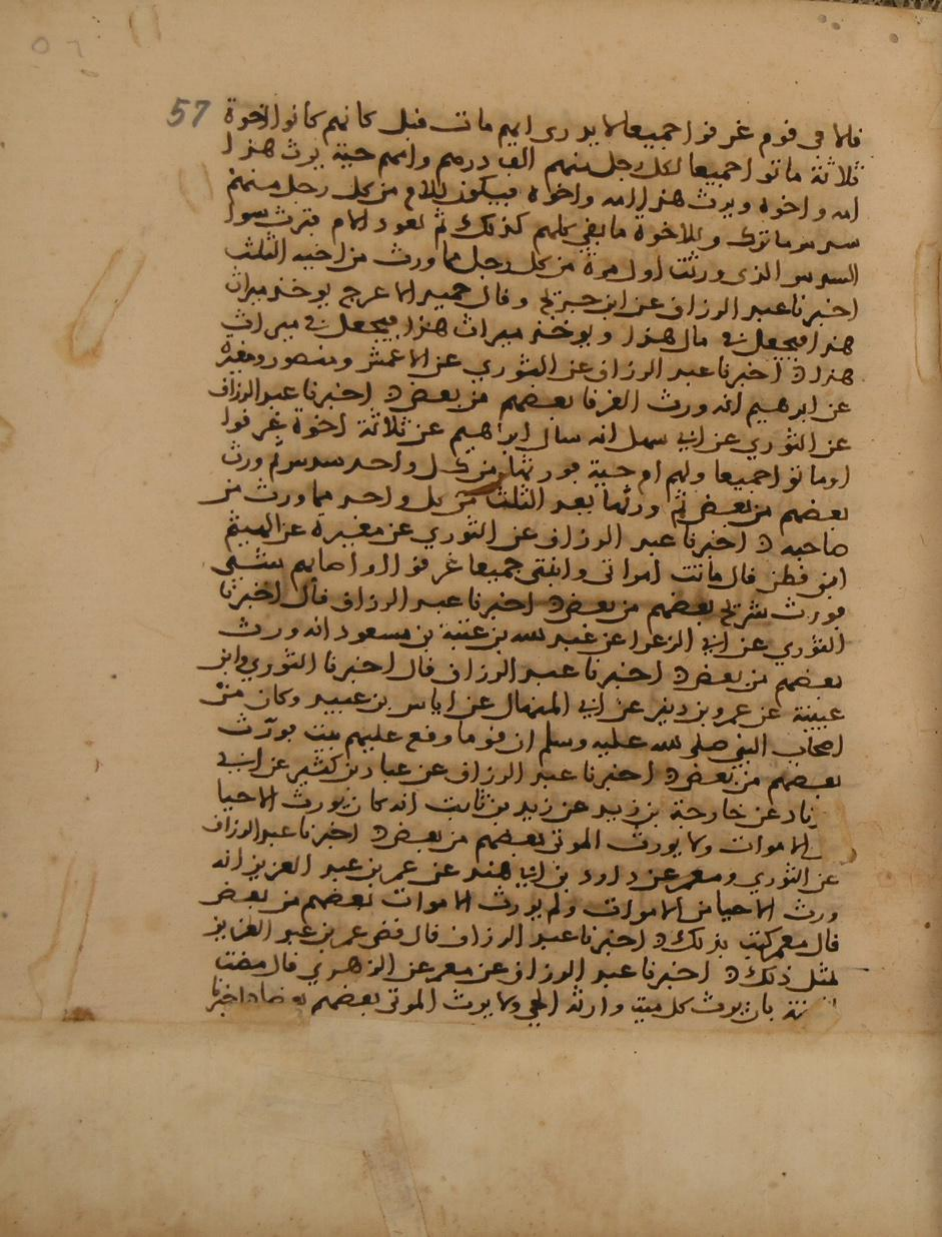 57
قالا في قوم غرقوا جميعا لا يدرى ايهم مات قبل كانهم كانوا اخوة
ثلاثة ماتوا جميعا لكل رجل منهم الف درهم وامهم حية يرث هذا
امه واخوه ويرث هذا امه واخوه فيكون للام من كل رجل منهم
سدس ما ترك وللاخوة ما بقي كلهم كذلك ثم تعود الام فترث سوا
السدس الذي ورثت اول مرة من كل رجل مما ورث من اخيه الثلث
اخبرنا عبد الرزاق عن ابن جريج وقال حميد الاعرج يوخذ ميراث
هذا فيجعل في مال هذا ويوخذ ميراث هذا فيجعل في ميراث
هذا ه اخبرنا عبد الرزاق عن الثوري عن الاعمش ومنصور ومغيرة
عن ابرهيم انه ورث الغرقا بعضهم من بعض ه اخبرنا عبد الرزاق
عن الثوري عن ابي سهل انه سال ابراهيم عن ثلاثة اخوة غرقوا
او ماتوا جميعا ولهم ام حية فورثها من كل واحد سدس ثم ورث
بعضهم من بعض ثم ورثها بعد الثلث من كل واحد مما ورث من
صاحبه ه اخبرنا عبد الرزاق عن الثوري عن مغيرة عن الهيثم
ابن قطن قال ماتت امراتي وابنتي جميعا غرقوا او اصابهم شي
فورث شريح بعضهم من بعض ه اخبرنا عبد الرزاق قال اخبرنا
الثوري عن ابي الزعرا عن عبد الله بن عتبة بن مسعود انه ورث
بعضهم من بعض ه اخبرنا عبد الرزاق قال اخبرنا الثوري وابن
عيينة عن عمرو بن دينر عن ابي المنهال عن اياس بن عبيد وكان من
اصحاب النبي صلى الله عليه وسلم ان قوما وقع عليهم بيت فورث
بعضهم من بعض ه اخبرنا عبد الرزاق عن عباد بن كثير عن ابي
ناد عن خارجة بن زيد عن زيد بن ثابت انه كان يورث الاحيا
الاموات ولا يورث الموتى بعضهم من بعض ه اخبرنا عبد الرزاق
عن الثوري ومعمر عن داود بن ابي هند عن عمر بن عبد العزيز انه
ورث الاحيا من الاموات ولم يورث الاموات بعضهم من بعض
قال معمر كتب بذلك ه اخبرنا عبد الرزاق قال قضى عمر بن عبد العزيز
بمثل ذلك ه اخبرنا عبد الرزاق عن معمر عن الزهري قال مضت
بان يرث كل ميت وارثه الحي ولا يرث الموتى بعضهم بعضا ه اخبرنا